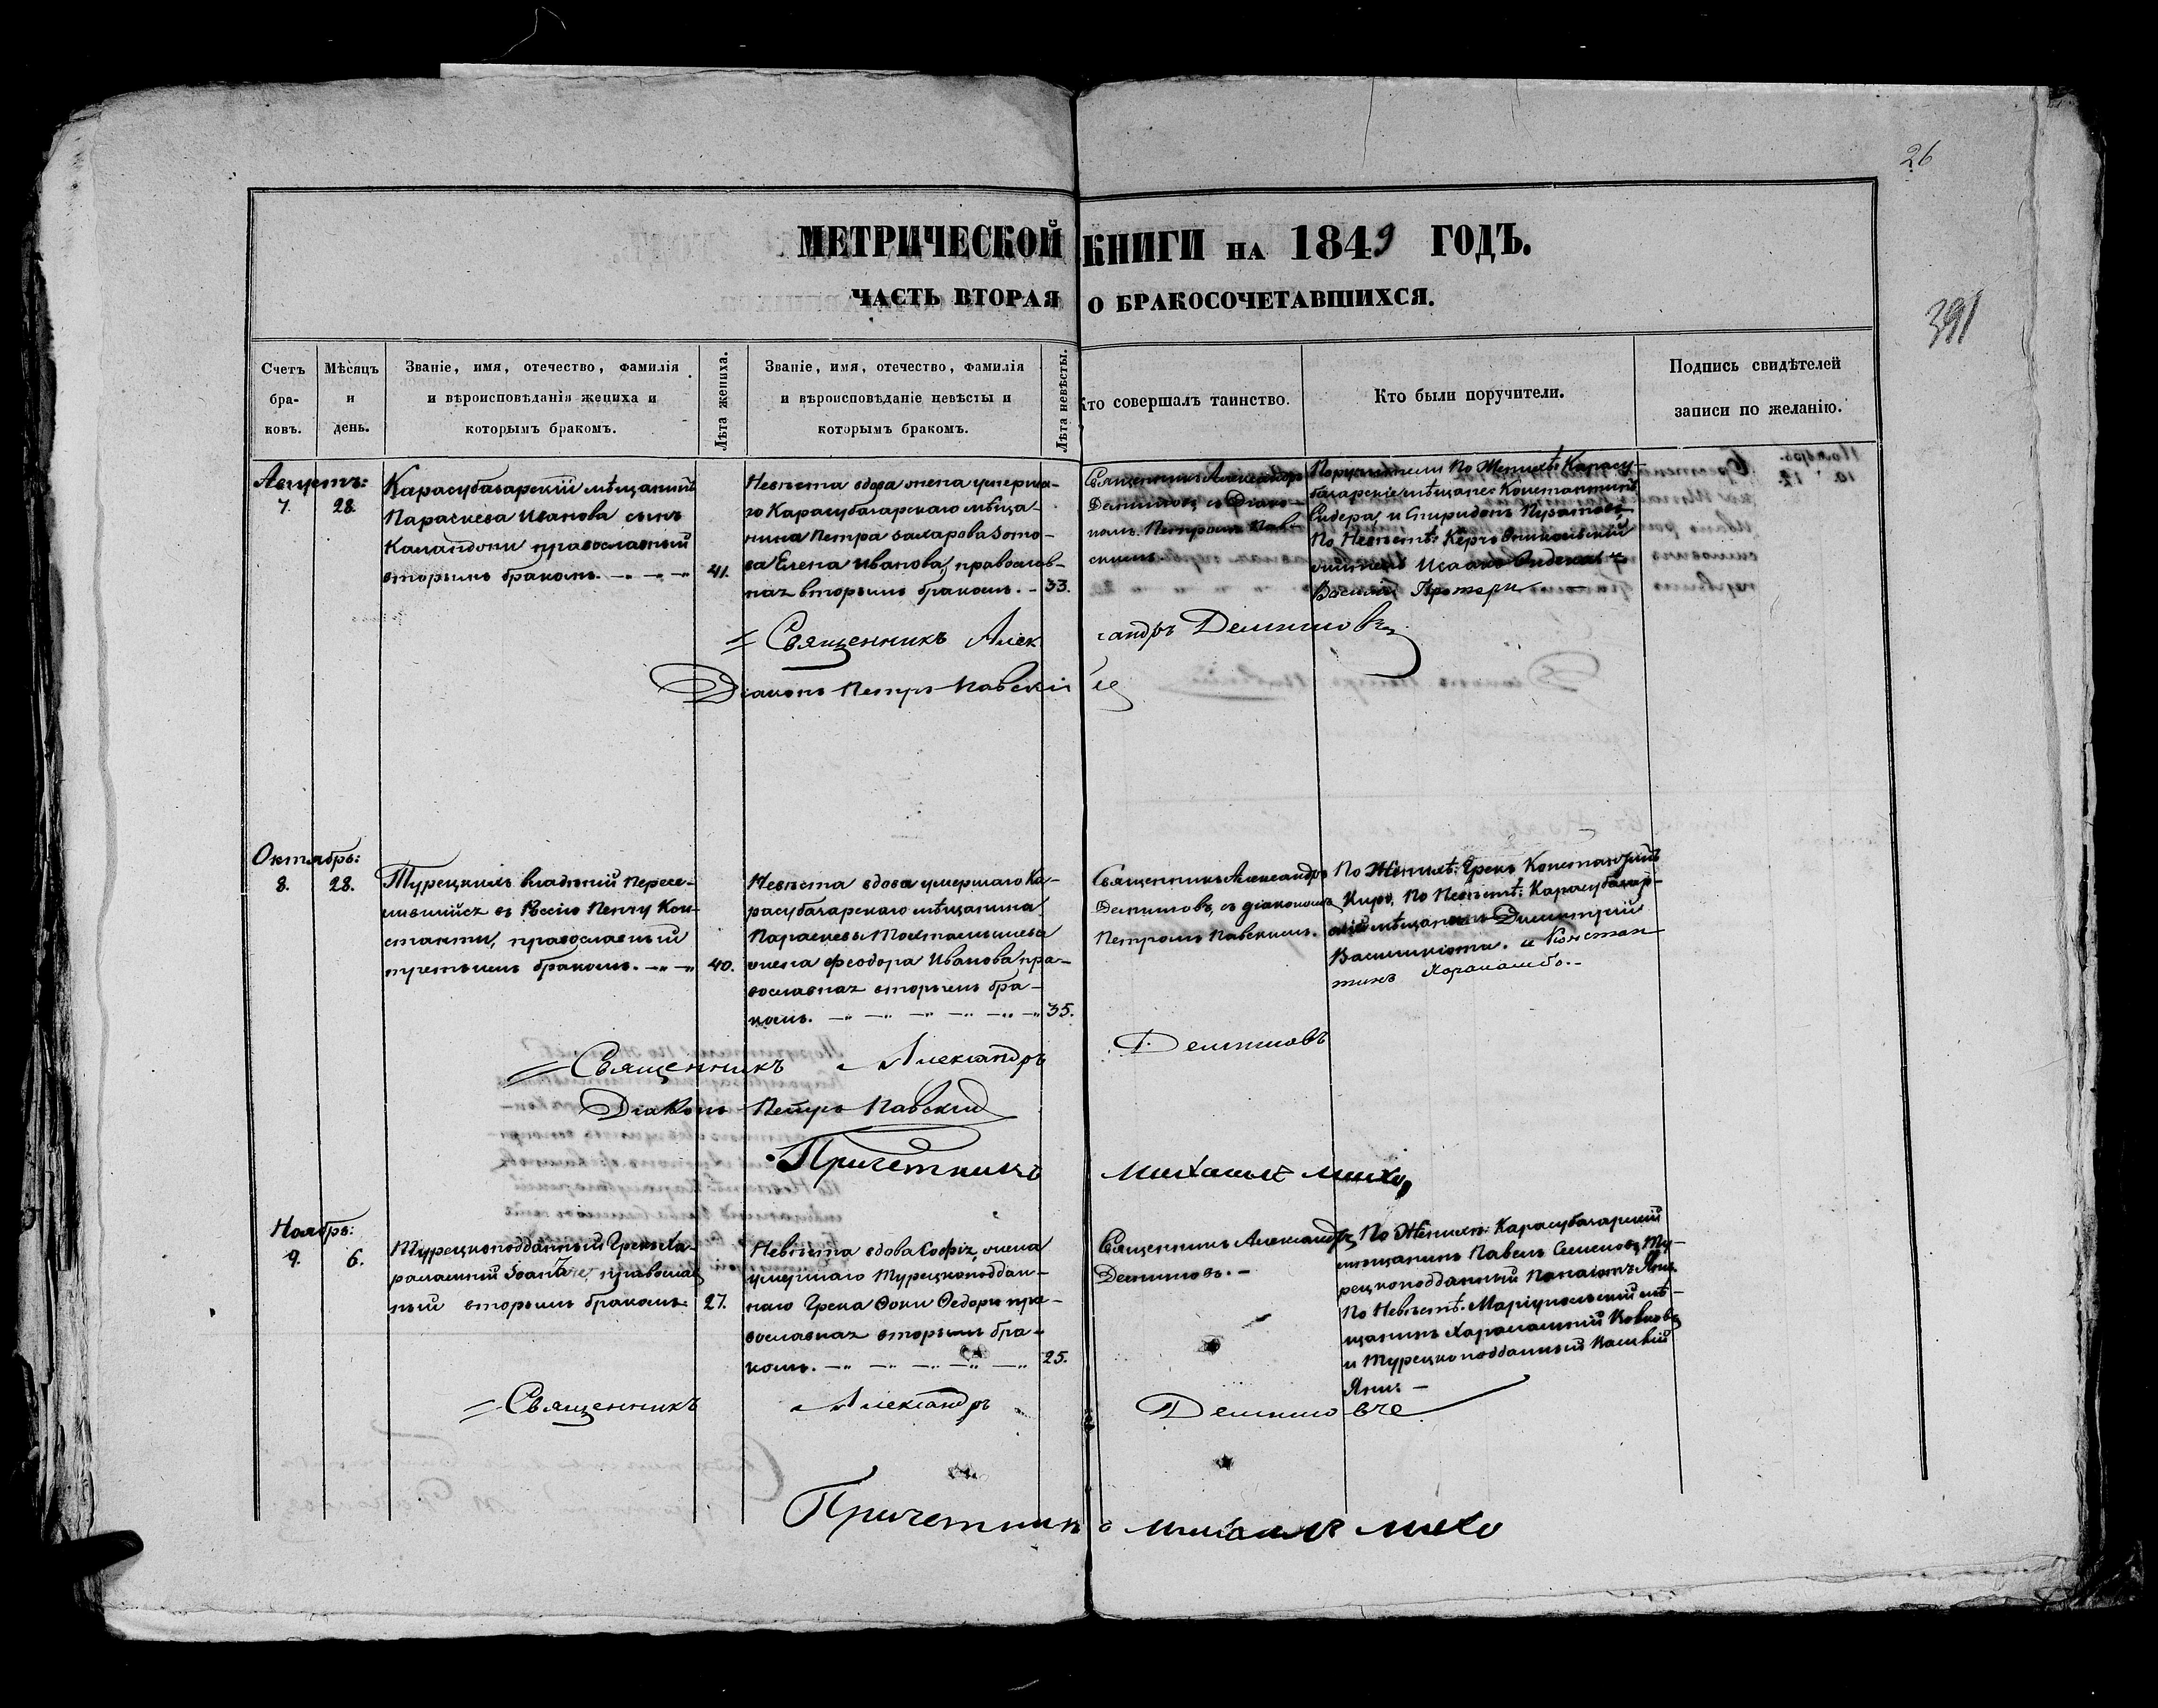 26
391
МЕТРИЧЕСКОЙ КНИГИ НА 1849 ГОДЪ.
ЧАСТЬ ВТОРАЯ О БРАКОСОЧЕТАВШИХСЯ.
Счетъ
бра-
ковъ.
Мѣсяцъ
и
день.
Званіе, имя, отечество, фамилія
и вѣроисповѣданія жениха и
которымъ бракомъ.
Лѣта жениха.
Званіе, имя, отечество, фамилія
и вѣроисповѣданіе невѣсты и
которымъ бракомъ.
Лѣта невѣсты.
Кто совершалъ таинство.
Кто были поручители.
Подпись свидѣтелей
записи по желанію.
Августъ:
7. 28.
Карасубазарскій мѣщанинъ
Параскева Иванова сынъ
православный
вторымъ бракомъ.
41.
Невѣста вдова жена умерша-
го Карасубазарскаго мѣща-
нина Петра Захарова
Елена Иванова, православ-
ная вторымъ бракомъ.
33.
Священникъ Александръ
Демяновъ съ Діако-
номъ Петромъ Пав-
скимъ.
Поручители по Женихѣ: Карасу-
базарскіе мѣщане: Константинъ
Сидера, и Спиридонъ
По Невѣстѣ: Керчь Еникольскій
Исаакъ и
Василій
Священникъ Александръ Демяновъ
Діаконъ Петръ Павскій
Октябрь:
8. 28.
Турецкихъ владѣній пересе-
лившійся въ Россію Пенчу Кон-
станти, православный
третьимъ бракомъ.
40.
Невѣста вдова умершаго Ка-
расубазарскаго мѣщанина
Параскевы
жена Феодора Иванова пра-
вославная вторымъ бра-
комъ.
35.
Священникъ Александръ
Демяновъ, съ діакономъ
Петромъ Павскимъ.
По Женихѣ: Грекъ Константинъ
Киро, По Невѣстѣ: Карасубазар-
скій мѣщанинъ Димитрій
и Констан
тинъ
Священникъ Александръ Демяновъ
Діаконъ Петръ Павскій
Причетникъ Михаилъ Михо
Ноябрь:
9. 6.
Турецкоподданный Грекъ Ха-
рлампій православ
ный вторымъ бракомъ.
27.
Невѣста вдова Софія, жена
умершаго Турецкоподдан-
наго Грека Ѳоки Ѳедори пра-
вославная вторымъ бра-
комъ.
25.
Священникъ Александръ
Демяновъ.
По Женихѣ: Карасубазарскій
мѣщанинъ Павелъ Семеновъ, Ту-
рецкоподданный Панаіотъ Яни.
По Невѣстѣ: Маріупольскій мѣ-
щанинъ Харлампій
и Турецкоподданный
Яни.
Священникъ Александръ Демяновъ
Причетникъ Михаилъ Михо